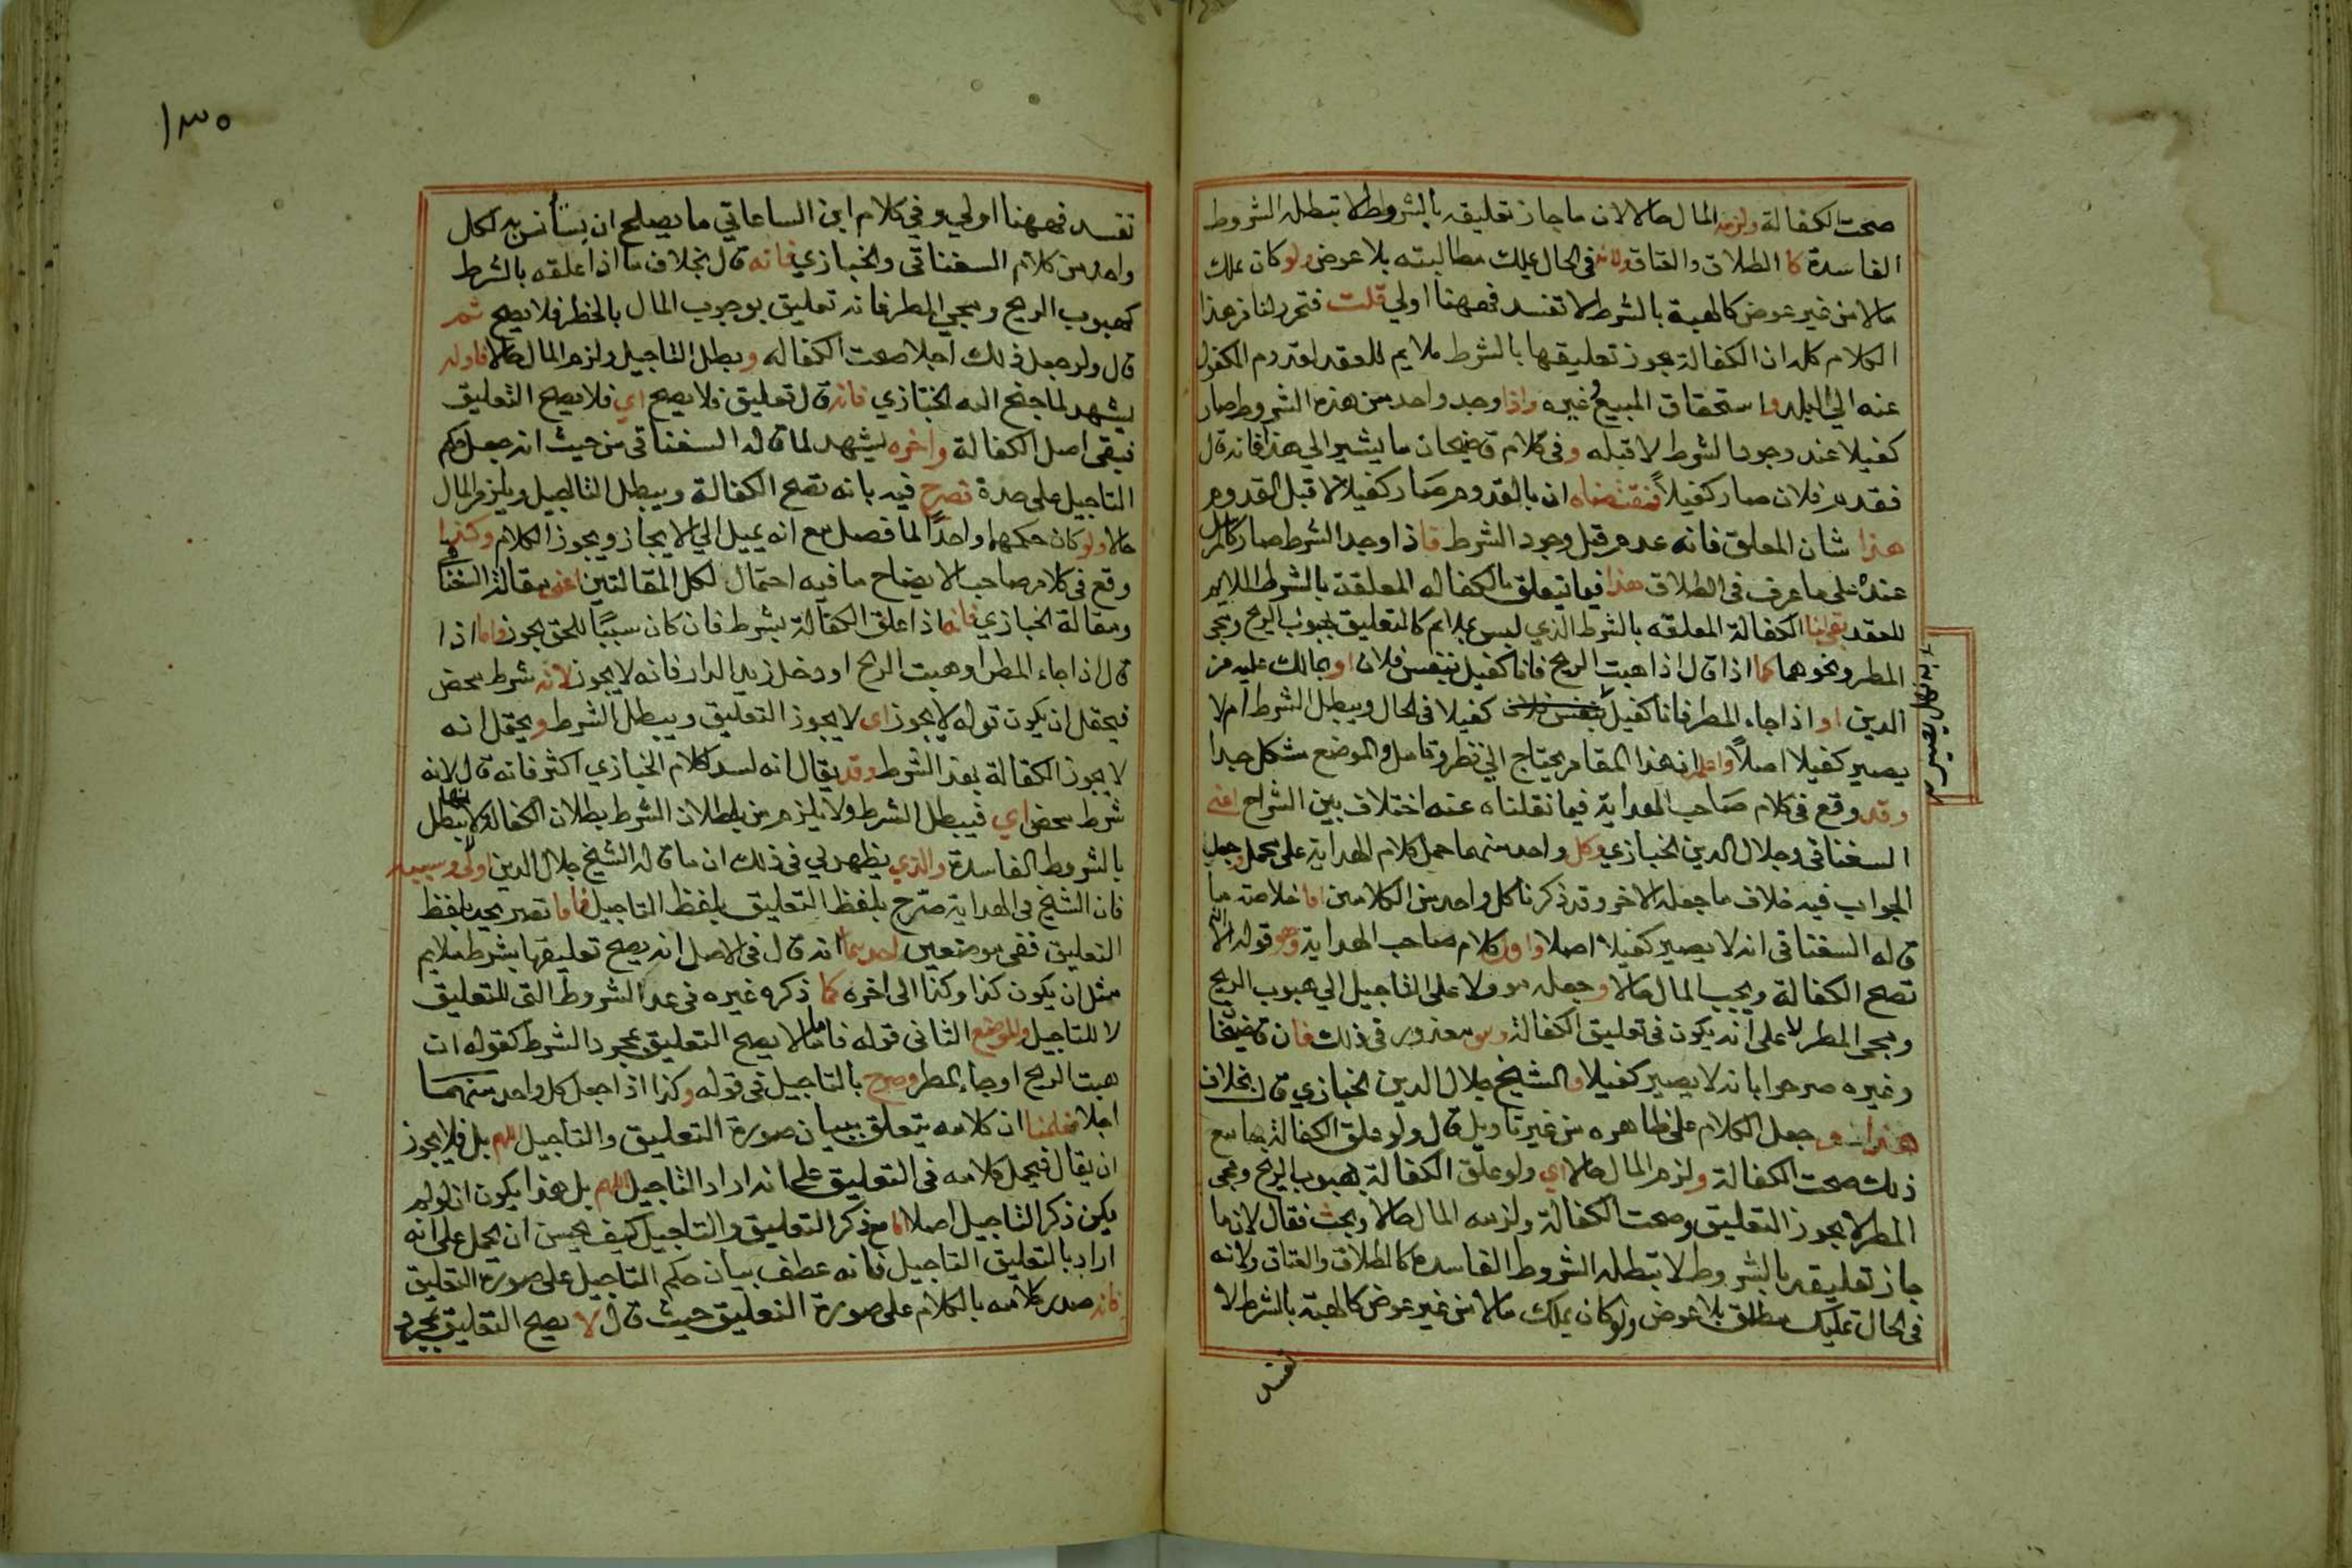 صحت الكفالة ولزمه المال حالا لان ما جاز تعليقه بالشروط لا تبطله الشروط
الفاسدة كا الطلاق والعتاق ولانه فى الحال يملك مطالبته بلا عوض ولو كان يملك
مالا من غير عوض كالهبة بالشرط لا تفسد فههنا اولي قلت فتحرر لنا من هذا
الكلام كله ان الكفالة يجوز تعليقها بالشرط ملايم للعقد لقدوم المكفول
عنه الي البلد واستحقاق المبيع وغيره واذا وجد واحد من هذه الشروط صار
كفيلا عند وجود الشرط لا قبله وفى كلام قاضيخان ما يشير الي هذا فانه قال
فقدم فلان صار كفيلاً فمقتضاه ان بالقدوم صار كفيلا لا قبل القدوم
هذا شان المعلق فانه عدم قبل وجود الشرط فاذا وجد الشرط صار كالمرسل
عنده على ما عرف فى الطلاق هذا فيما يتعلق بالكفاله المعلقة بالشرط الملايم
للعقد بقي لنا الكفالة المعلقه بالشرط الذي ليس بملايم كالتعليق بهبوب الريح ومجي
المطر ونحوهما كما اذا قال اذا هبت الريح فانا كفيل بنفس فلان او بمالك عليه من
الدين او اذا جاء المطر فانا كفيل بنفس فلان كفيلا فى الحال ويبطل الشرط ام لا
يصير كفيلا اصلاً واعلم ان هذا المقام يحتاج الي نظر وتامل والموضع مشكل جدا
وقد وقع فى كلام صاحب الهداية فيما نقلناه عنه اختلاف بين الشراح اعنى
السغناقى وجلال الدين الخبازي وكل واحد منهما حمل كلام الهداية على محمل وجعل
الجواب فيه خلاف ما جعله الاخر وقد ذكرنا كل واحد من الكلامين اما خلاصة ما
قاله السغناقى انه لا يصير كفيلا اصلا واول كلام صاحب الهداية وهو قوله الا انه
تصح الكفالة ويجب المال حالا وجعله موولا على التاجيل الي هبوب الريح
ومجى المطر لا على انه يكون فى تعليق الكفالة وهو معذور فى ذلك فان قاضيخان
وغيره صرحوا بانه لا يصير كفيلا والشيخ جلال الدين الخبازي قال بخلاف
هذا وجعل الكلام على ظاهره من غير تاويل قال ولو علق الكفالة بها مع
ذلك صحت الكفالة ولزم المال حالا اي ولو علق الكفالة بهبوب الريح ومجى
المطر لا يجوز التعليق وصحت الكفالة ولزمه المال حالا وبحث فقال لان ما
جاز تعليقه بالشروط لا تبطله الشروط الفاسدة كالطلاق والعتاق ولانه
فى الحال تمليك مطلق بلا عوض ولو كان يملك مالا من غير عوض كالهبة بالشرط لا
تفسد
١٣٠
تفسد فههنا اولي وفي كلام ابن الساعاتي ما يصلح ان يستأنس به لكل
واحد من كلام السغناقى والخبازي فانه قال بخلاف ما اذا علقه بالشرط
كهبوب الريح ومجي المطر فانه تعليق بوجوب المال بالخطر فلا يصح ثم
قال ولو جعل ذلك اجلا صحت الكفاله وبطل التاجيل ولزم المال حالا فاوله
يشهد لما جنح اليه الخبازي فانه قال تعليق فلا يصح اي فلا يصح التعليق
فيبقى اصل الكفالة واخره يشهد لما قاله السغناقى من حيث انه جعل حكم
التاجيل على حدة فصرح فيه بانه تصح الكفالة ويبطل التاجيل ويلزم المال
حالا ولو كان حكمهما واحداً لما فصل مع انه يميل الي الايجاز ويجوز الكلام وكذا
وقع فى كلام صاحب الايضاح ما فيه احتمال لكل المقالتين اعنى مقالة السغناقى
ومقالة الخبازي فانه اذا علق الكفالة بشرط فان كان سببًا للحق يجوز واما اذا
قال اذا جاء المطر او هبت الريح او دخل زيد الدار فانه لا يجوز لانه شرط محض
فيحتمل ان يكون قوله لا يجوز اى لا يجوز التعليق ويبطل الشرط ويحتمل انه
لا يجوز الكفالة بهذا الشرط وقد يقال انه لسد كلام الخبازي اكثر فانه قال لانه
شرط محض اي فيبطل الشرط ولا يلزم من بطلان الشرط بطلان الكفاله لانها لا تبطل
بالشروط الفاسدة والذي يظهر لي فى ذلك ان ما قاله الشيخ جلال الدين اولى وسببه
فان الشيخ فى الهداية صرح بلفظ التعليق بلفظ التاجيل فاما تصريحه بلفظ
التعليق ففى موضعين احدهما انه قال فى الاصل انه يصح تعليقها بشرط ملايم
مثل ان يكون كذا وكذا الى اخره كما ذكره غيره فى عد الشروط التى للتعليق
لا للتاجيل والموضع الثانى قوله فاما ما لا يصح التعليق بمجرد الشرط كقوله ان
هبت الريح او جاء المطر وصرح بالتاجيل فى قوله وكذا اذا جعل كل واحد منهما
اجلا فعلمنا ان كلامه يتعلق ببيان صورة التعليق والتاجيل اللهم بل فلا يجوز
ان يقال فيحمل كلامه فى التعليق على انه اراد التاجيل اللهم بل هذا يكون ان لو لم
يكن ذكر التاجيل اصلا اما مع ذكر التعليق والتاجيل كيف يحسن ان يحمل على انه
اراد بالتعليق التاجيل فانه عطف بيان حكم التاجيل على صورة التعليق
فانه صدر كلامه بالكلام على صورة التعليق حيث قال لا يصح التعليق بمجرد